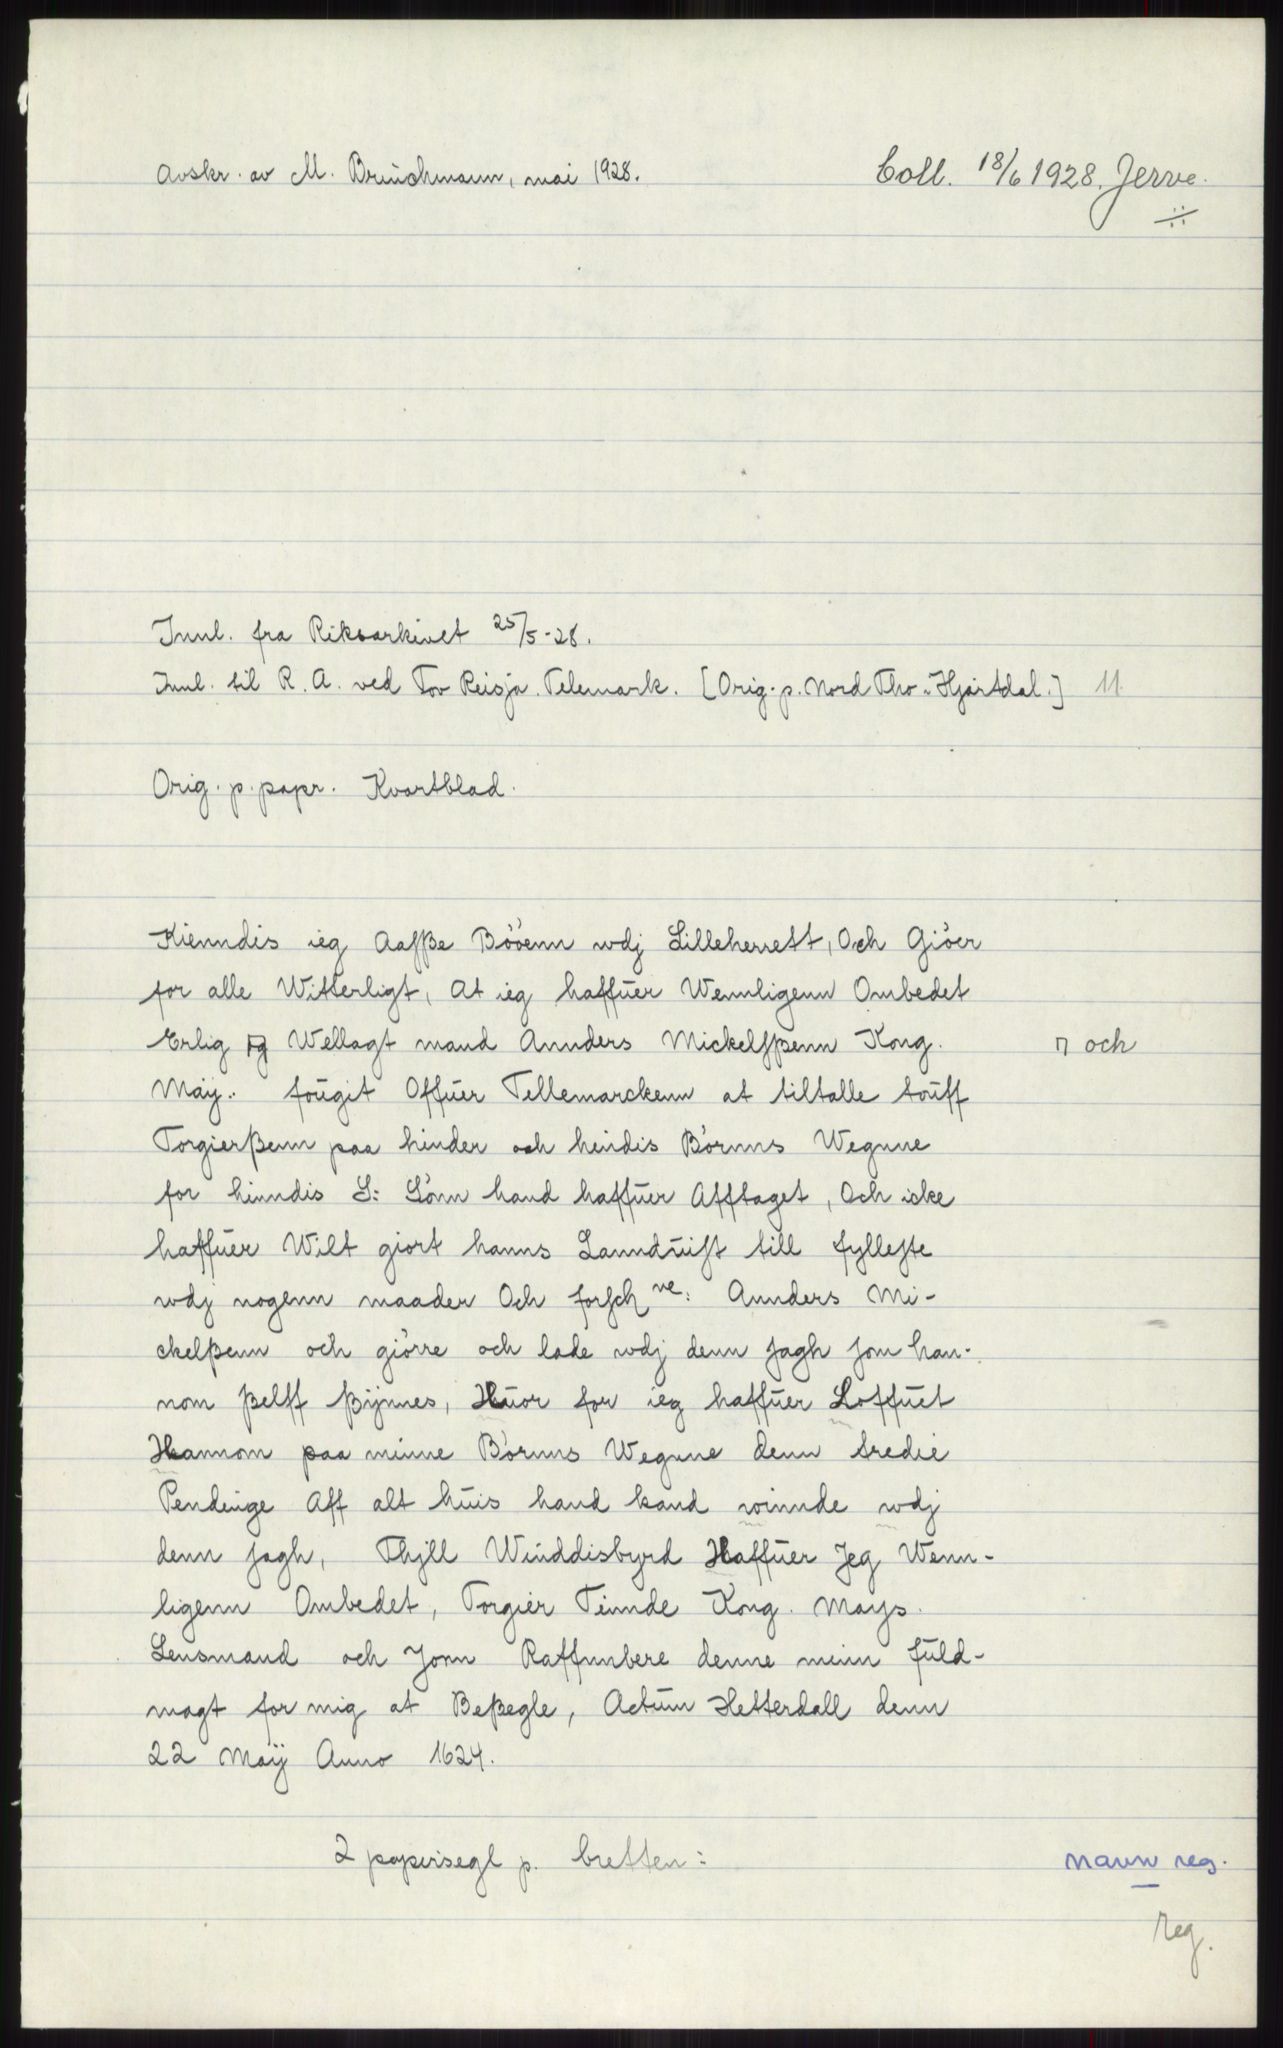 Avskr. av M. Bruichmann, mai 1928.
Coll. 18/6 1928. Jerve.
Innl. fra Riksarkivet 25/5-28.
Innl. til R. A. ved Tov Reisja. Telemark. [Orig. p. Nord Tho - Hjartdal.] 11
Orig. p. papr. Kvartblad.
Kienndis ieg Aasße Böoenn wdj Lilleherrett, Och Giöer
for alle Witterligt, At ieg haffuer Wennligenn Ombedet
Erlig Wellagt mand Annders Mickelsßenn Kong. ⁊ och
Maÿ: fougit Offuer Tellemarckenn at tiltalle touff
Torgierßenn paa hinder och heindis Börnns Wegnne
for hinndis S: Sönn hand haffuer Afftaget, Och icke
haffuer Wilt giort hanns Lanndtuist till fylleste
wdj nogenn maader Och forsch ne: Annders Mi-
ckelßenn och giörre och lade wdj denn sagh som han-
nom ßelff ßÿnnes, Huor for ieg haffuer Loffuet
Hannom paa minne Börnns Wegnne denn tredie
Pendinge Aff alt huis hand kand winnde wdj
denn sagh, Thjll Winddisbyrd Haffuer Jeg Wenn-
ligenn Ombedet, Torgier Tinnde Kong. Mays.
Lensmand och Jonn Raffnnbere denne minn fuld-
magt for mig at Beßegle, Actum Hetterdall denn
22 Maÿ Anno 1624.
2 papirsegl p. bretten:
navn reg.
reg.